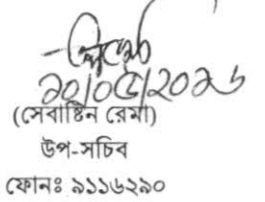 ২০/০৫/২০১৬
(সেবাষ্টিন রেমা)
উপ-সচিব
ফোনঃ ৯১১৬২৯০